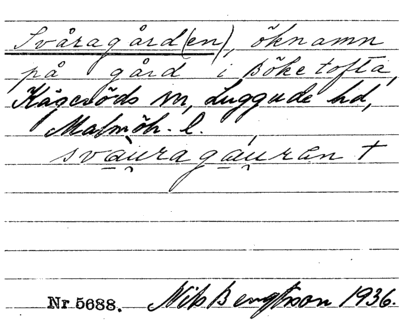 Svåragård(en), öknamn
på gård i Böketofta,
Kågeröds sn, Luggude hd,
Malmöh. l.
svau̯ragáu̯ran †
Nr 5688. Nils Bengtsson 1936.